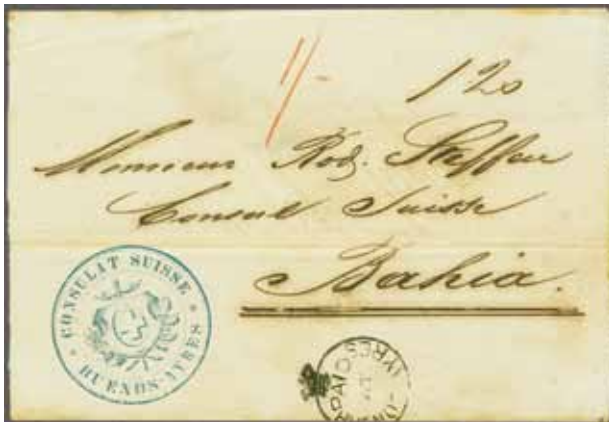 1/-
120
Monsieur Rod. Steffen
Consul Suisse
Bahia.
CONSULAT SUISSE
BUENOS-AYRES
PAID